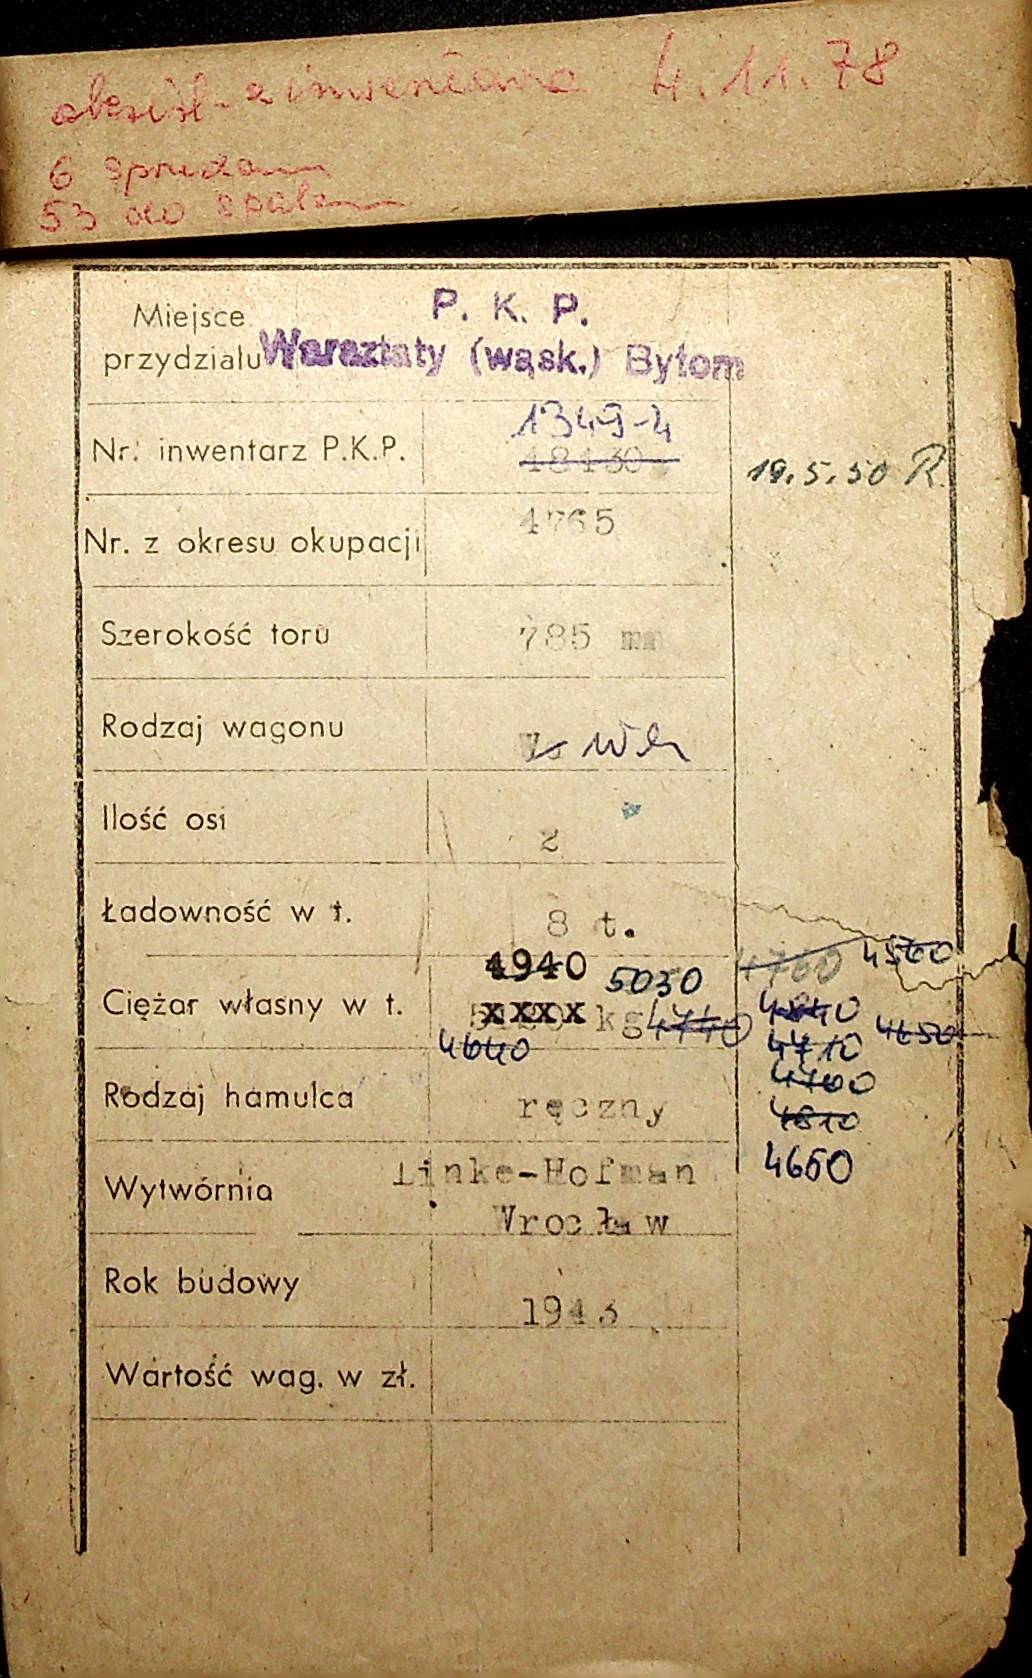 4.11.78
6
53 do
P. K. P.
Miejsce
przydziału Warsztaty (wąsk.) Bytom
1349-4
Nr. inwentarz P.K.P. 18430
19.5.50 R.
Nr. z okresu okupacji 4765
Szerokość toru 785 mm
Rodzaj wagonu
Ilość osi 2
Ładowność w t. 8 t.
4940 5030 4760 4560
Ciężar własny w t. xxxx kg 4740 4840
4640 4710 4650
4700
Rodzaj hamulca ręczny 4810
4660
Wytwórnia linke-Hofman
Wrocław
Rok budowy 1943
Wartość wag. w zł.